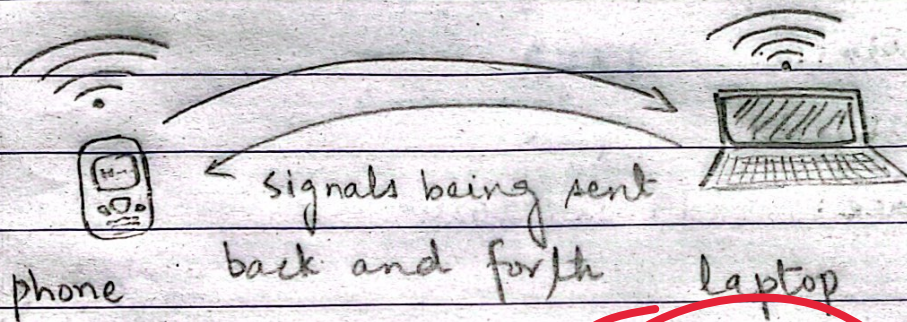 signals being sent
back and forth
phone
laptop